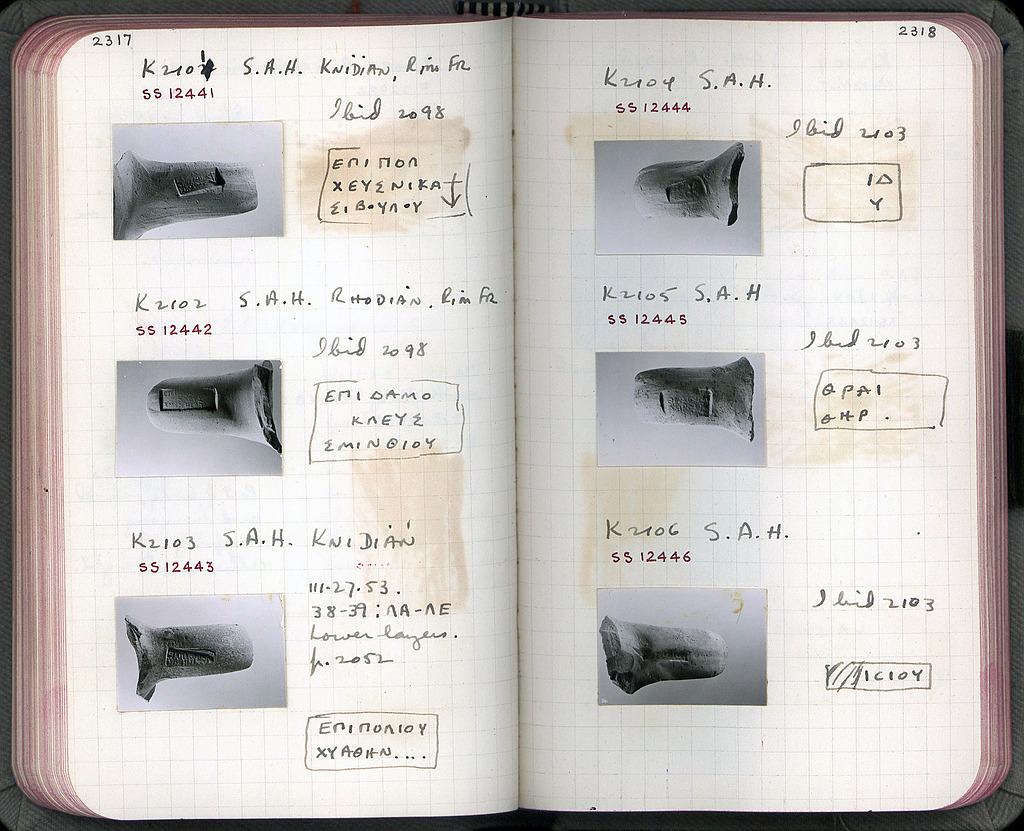 2317
K2101 S.A.H. KNIDIAN, Rim Fr
SS 12441
Ibid 2098
ΕΠΙΠΟΛ
ΧΕΥΣΝΙΚΑ
ΣΙΒΟΥΛΟΥ
K2102 S.A.H. RHODIAN. Rim Fr
SS 12442
Ibid 2098
ΕΠΙ ΔΑΜΟ
ΚΛΕΥΣ
ΣΜΙΝΘΙΟΥ
K2103 S.A.H. KNIDIAN
SS 12443
III-27-53.
38-39 : ΛΑ-ΛΕ
Lower layers.
p. 2052
ΕΠΙΠΟΛΙΟΥ
ΧΥΑΘΗΝ....
2318
K2104 S.A.H.
SS 12444
Ibid 2103
ΙΔ
Υ
K2105 S.A.H
SS 12445
Ibid 2103
ΘΡΑΙ
ΘΗΡ .
K2106 S.A.H.
SS 12446
Ibid 2103
ΙCΙΟΥ